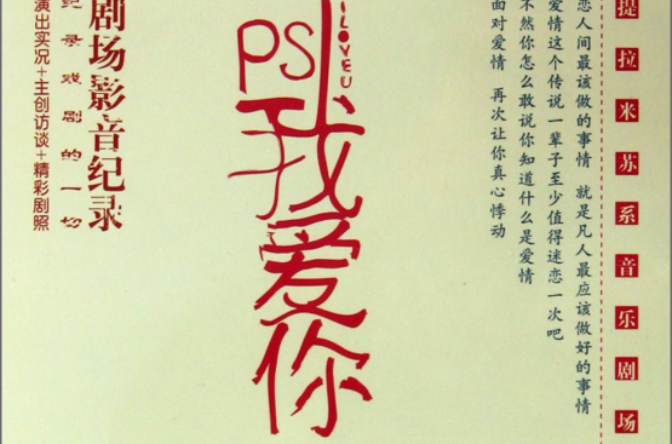 提拉米苏系音乐剧场
恋人间最该做的事情 就是凡人最应该做好的事情
爱情这个传说一辈子至少值得迷恋一次吧
不然你怎么敢说你知道什么是爱情
面对爱情 再次让你真心悸动
I LOVE U
PS
我爱你
剧场影音纪录
纪录戏剧的一切
演出实况+主创访谈+精彩剧照